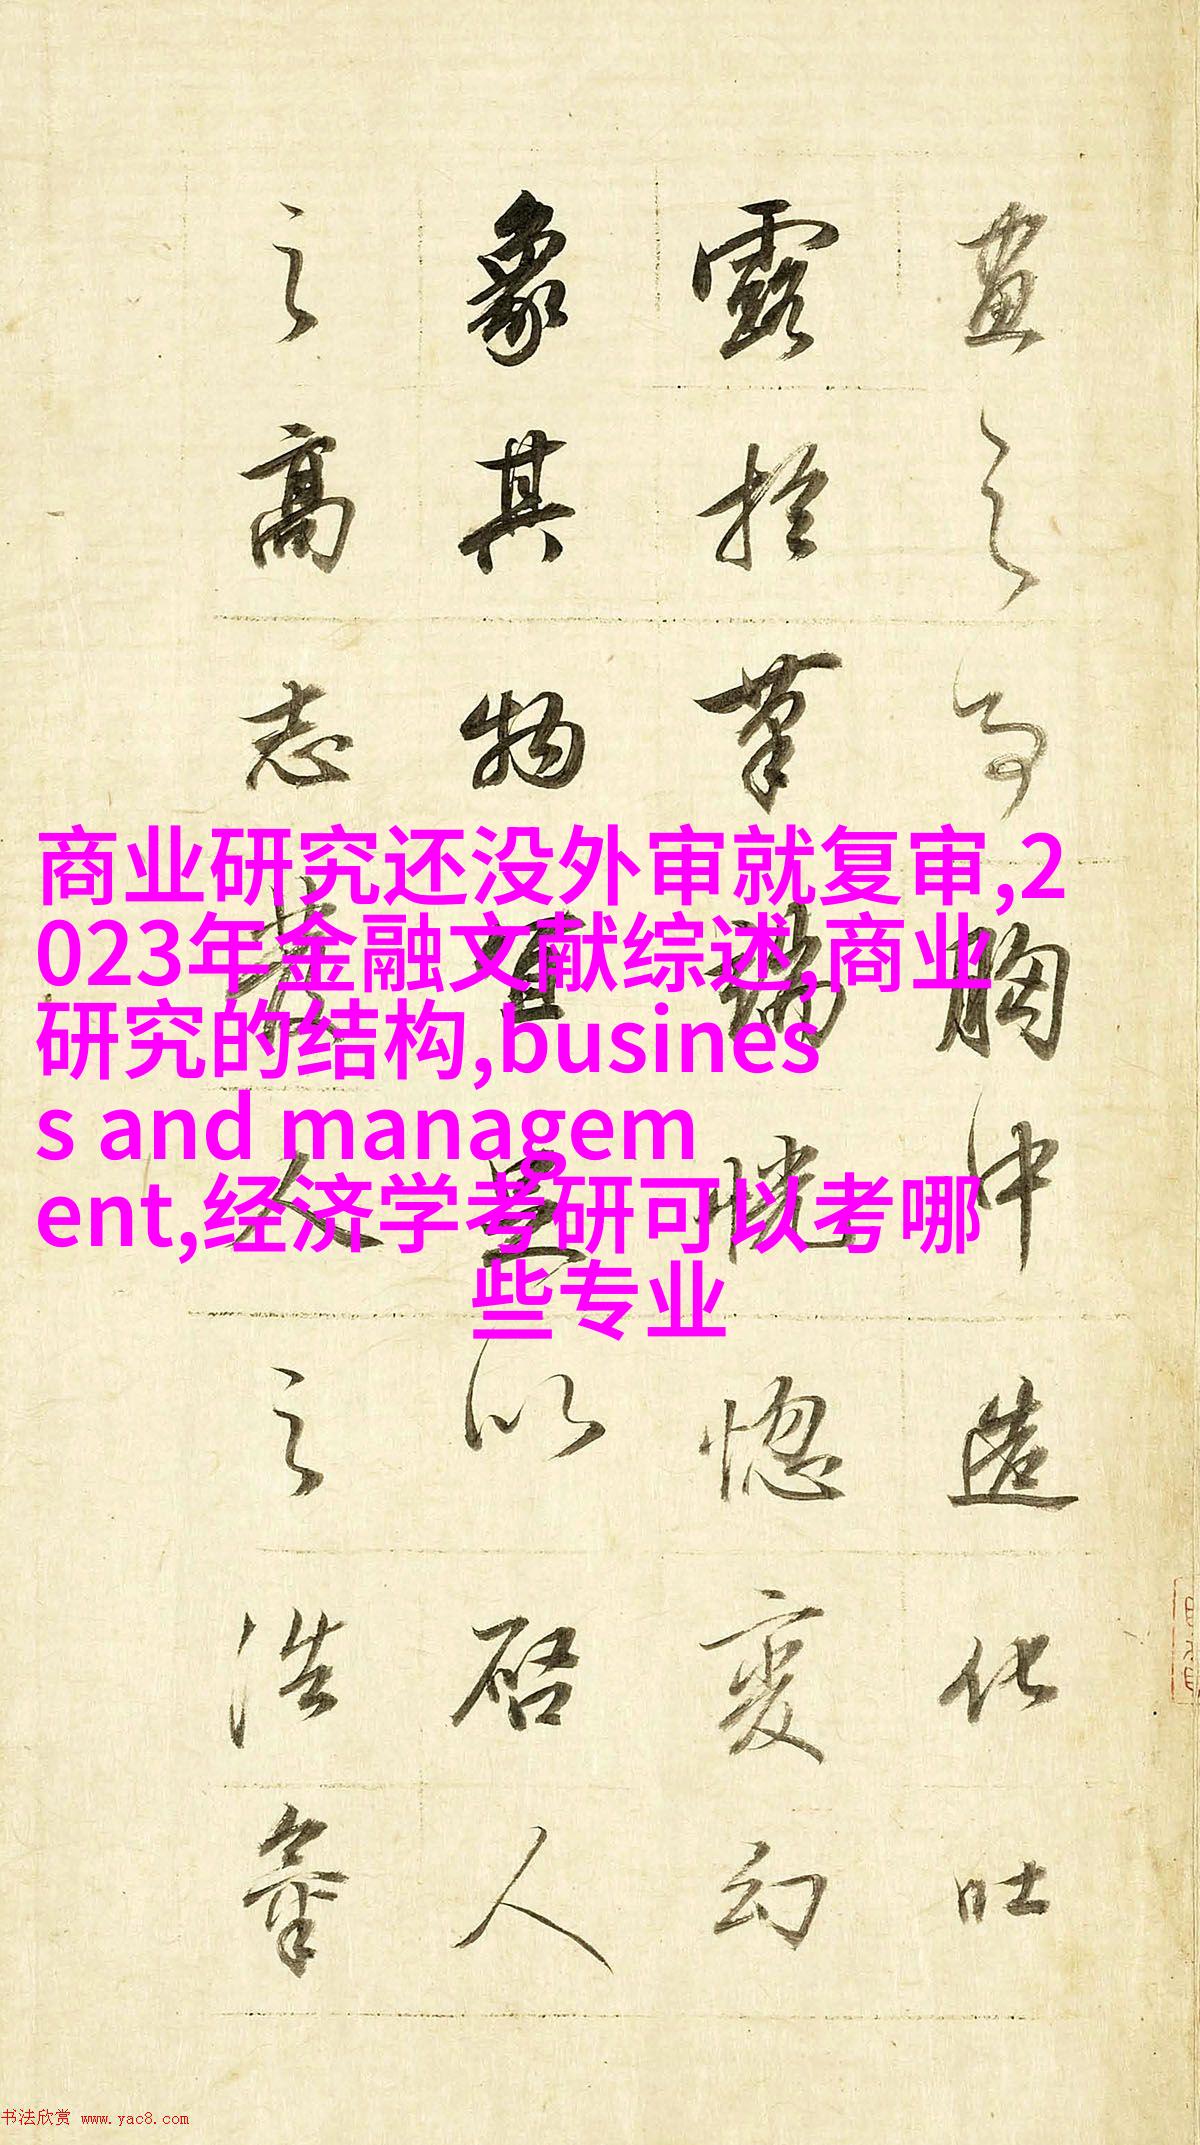 商业研究还没外审就复审,2
023年金融文献综述,商业
研究的结构,busines
s and managem
ent,经济学考研可以考哪
些专业
画之为 胸中造化吐
露於笔端恍惚变幻
象其物宜足以启人
之高志发人之浩气
书法欣赏 www.yac8.com